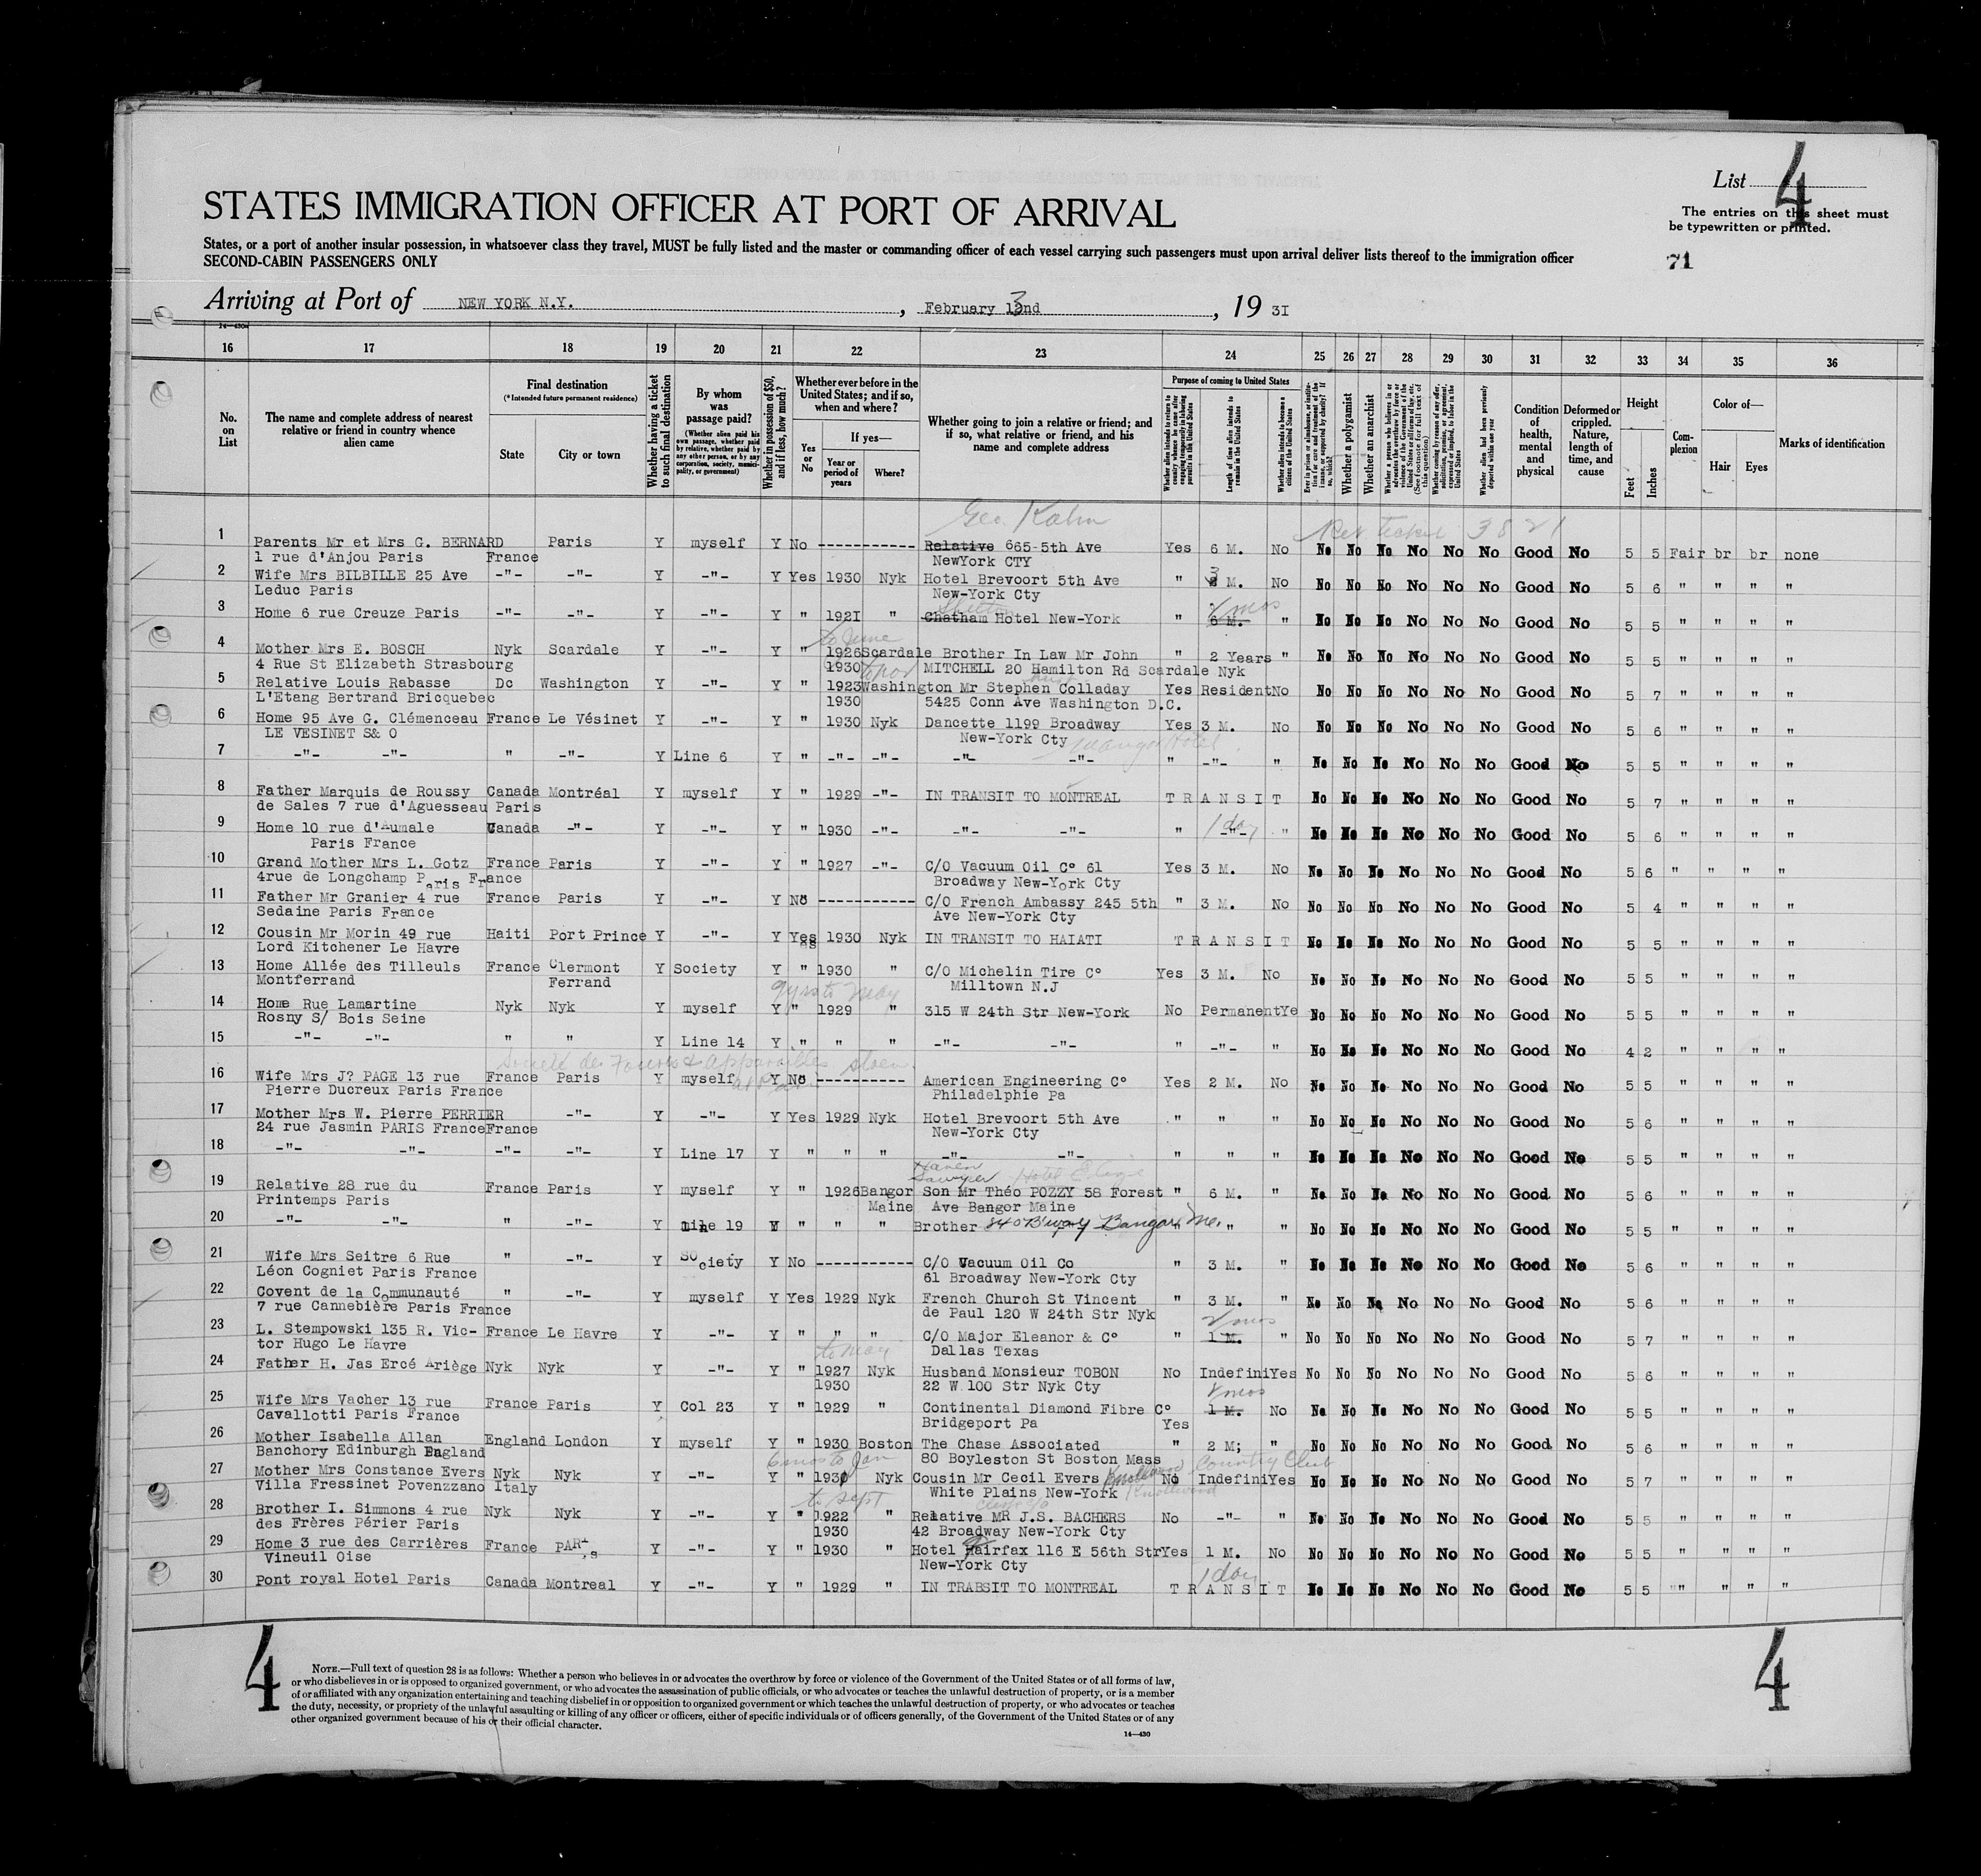 List 4
The entries on this sheet must
be typewritten or printed.
71
STATES IMMIGRATION OFFICER AT PORT OF ARRIVAL
States, or a port of another insular possession, in whatsoever class they travel, MUST be fully listed and the master or commanding officer of each vessel carrying such passengers must upon arrival deliver lists thereof to the immigration officer
SECOND-CABIN PASSENGERS ONLY
Arriving at Port of NEW YORK N.Y. , February 3nd , 19 3I
14—430
16 17 18 19 20 21 22 23 24 25 26 27 28 29 30 31 32 33 34 35 36
No. on List
The name and complete address of nearest relative or friend in country whence alien came
Final destination
(*Intended future permanent residence)
State
City or town
Whether having a ticket to such final destination
By whom was passage paid?
(Whether alien paid his own passage, whether paid by relative, whether paid by any other person, or by any corporation, society, municipality, or government)
Whether in possession of $50, and if less, how much?
Whether ever before in the United States; and if so, when and where?
Yes or No
If yes—
Year or period of years
Where?
Whether going to join a relative or friend; and if so, what relative or friend, and his name and complete address
Purpose of coming to United States
Length of time alien intends to remain in the United States
Whether alien intends to become a citizen of the United States
Whether a polygamist
Whether an anarchist
Whether alien had been previously deported within one year
Condition of health, mental and physical
Deformed or crippled. Nature, length of time, and cause
Height
Feet
Inches
Complexion
Color of—
Hair
Eyes
Marks of identification
Geo. Kahn
1 Parents Mr et Mrs G. BERNARD Paris Y myself Y No ----------- Relative 665-5th Ave Yes 6 M. No No No No No No No Good No 5 5 Fair br br none
1 rue d'Anjou Paris France NewYork CTY
2 Wife Mrs BILBILLE 25 Ave -"- -"- Y -"- Y Yes 1930 Nyk Hotel Brevoort 5th Ave " 3 M. No No No No No No No Good No 5 6 " " " "
Leduc Paris New-York Cty
3 Home 6 rue Creuze Paris -"- -"- Y -"- Y " 192I " Chatham Hotel New-York " 6 M. " No No No No No No Good No 5 5 " " " "
4 Mother Mrs E. BOSCH Nyk Scardale Y -"- Y " 1926 Scardale Brother In Law Mr John " 2 Years " No No No No No No Good No 5 5 " " " "
4 Rue St Elizabeth Strasbourg 1930 MITCHELL 20 Hamilton Rd Scardale Nyk
5 Relative Louis Rabasse Dc Washington Y -"- Y " 1923 Washington Mr Stephen Colladay Yes Resident No No No No No No No Good No 5 7 " " " "
L'Etang Bertrand Bricquebec 1930 5425 Conn Ave Washington D.C.
6 Home 95 Ave G. Clémenceau France Le Vésinet Y -"- Y " 1930 Nyk Dancette 1199 Broadway Yes 3 M. No No No No No No No Good No 5 6 " " " "
LE VESINET S& O New-York Cty
7 -"- -"- " -"- Y Line 6 Y " -"- -"- -"- -"- " -"- " No No No No No No Good No 5 5 " " " "
8 Father Marquis de Roussy Canada Montréal Y myself Y " 1929 -"- IN TRANSIT TO MONTREAL T R A N S I T No No No No No No Good No 5 7 " " " "
de Sales 7 rue d'Aguesseau Paris
9 Home 10 rue d'Aumale Canada -"- Y -"- Y " 1930 -"- -"- -"- " 1 day -"- " No No No No No No Good No 5 6 " " " "
Paris France
10 Grand Mother Mrs L. Gotz France Paris Y -"- Y " 1927 -"- C/O Vacuum Oil C° 61 Yes 3 M. No No No No No No No Good No 5 6 " " " "
4rue de Longchamp Paris France Broadway New-York Cty
11 Father Mr Granier 4 rue France Paris Y -"- Y No ----------- C/O French Ambassy 245 5th " 3 M. No No No No No No No Good No 5 4 " " " "
Sedaine Paris France Ave New-York Cty
12 Cousin Mr Morin 49 rue Haiti Port Prince Y -"- Y Yes 1930 Nyk IN TRANSIT TO HAIATI T R A N S I T No No No No No No Good No 5 5 " " " "
Lord Kitchener Le Havre
13 Home Allée des Tilleuls France Clermont Y Society Y " 1930 " C/O Michelin Tire C° Yes 3 M. No No No No No No No Good No 5 5 " " " "
Montferrand Ferrand Milltown N.J
14 Home Rue Lamartine Nyk Nyk Y myself Y " 1929 " 315 W 24th Str New-York No Permanent Ye No No No No No No Good No 5 5 " " " "
Rosny S/ Bois Seine
15 -"- -"- " " Y Line 14 Y " " " -"- -"- " -"- " No No No No No No Good No 4 2 " " " "
16 Wife Mrs J? PAGE 13 rue France Paris Y myself Y No ---------- American Engineering C° Yes 2 M. No No No No No No No Good No 5 5 " " " "
Pierre Ducreux Paris France Philadelphie Pa
17 Mother Mrs W. Pierre PERRIER -"- Y -"- Y Yes 1929 Nyk Hotel Brevoort 5th Ave " " " No No No No No No Good No 5 6 " " " "
24 rue Jasmin PARIS France France New-York Cty
18 -"- -"- -"- -"- Y Line 17 Y " " " -"- -"- " " " No No No No No No Good No 5 5 " " " "
19 Relative 28 rue du France Paris Y myself Y " 1926 Bangor Son Mr Théo POZZY 58 Forest " 6 M. " No No No No No No Good No 5 6 " " " "
Printemps Paris Maine Ave Bangor Maine
20 -"- -"- " -"- Y Line 19 Y " " " Brother 840 B'way Bangor Me. " " " No No No No No No Good No 5 5 " " " "
21 Wife Mrs Seitre 6 Rue " -"- Y Society Y No ----------- C/O Vacuum Oil Co " 3 M. " No No No No No No Good No 5 6 " " " "
Léon Cogniet Paris France 61 Broadway New-York Cty
22 Covent de la Communauté " -"- Y myself Y Yes 1929 Nyk French Church St Vincent " 3 M. " No No No No No No Good No 5 6 " " " "
7 rue Cannebière Paris France de Paul 120 W 24th Str Nyk
23 L. Stempowski 135 R. Vic- France Le Havre Y -"- Y " " " C/O Major Eleanor & C° " 1 M. " No No No No No No Good No 5 7 " " " "
tor Hugo Le Havre Dallas Texas
to May
24 Father H. Jas Ercé Ariège Nyk Nyk Y -"- Y " 1927 Nyk Husband Monsieur TOBON No Indefini Yes No No No No No No Good No 5 6 " " " "
1930 22 W 100 Str Nyk Cty
25 Wife Mrs Vacher 13 rue France Paris Y Col 23 Y " 1929 " Continental Diamond Fibre C° 1 M. No No No No No No No Good No 5 5 " " " "
Cavallotti Paris France Bridgeport Pa Yes
26 Mother Isabella Allan England London Y myself Y " 1930 Boston The Chase Associated " 2 M; " No No No No No No Good No 5 6 " " " "
Banchory Edinburgh England 80 Boyleston St Boston Mass
6 mos to Jan Country Club
27 Mother Mrs Constance Evers Nyk Nyk Y -"- Y " 1930 Nyk Cousin Mr Cecil Evers Knollwood No Indefini Yes No No No No No No Good No 5 7 " " " "
Villa Fressinet Povenzzano Italy White Plains New-York Knollwood
to Sept
28 Brother I. Simmons 4 rue Nyk Nyk Y -"- Y " 1922 " Relative MR J.S. BACHERS No -"- " No No No No No No Good No 5 5 " " " "
des Frères Périer Paris 1930 42 Broadway New-York Cty
29 Home 3 rue des Carrières France PARis Y -"- Y " 1930 " Hotel Fairfax 116 E 56th Str Yes 1 M. No No No No No No No Good No 5 5 " " " "
Vineuil Oise New-York Cty
30 Pont royal Hotel Paris Canada Montreal Y -"- Y " 1929 " IN TRABSIT TO MONTREAL 1 day T R A N S I T No No No No No No Good No 5 5 " " " "
4 4
NOTE.—Full text of question 28 is as follows: Whether a person who believes in or advocates the overthrow by force or violence of the Government of the United States or of all forms of law,
or who disbelieves in or is opposed to organized government, or who advocates the assassination of public officials, or who advocates or teaches the unlawful destruction of property, or is a member
of or affiliated with any organization entertaining and teaching disbelief in or opposition to organized government or which teaches the unlawful destruction of property, or who advocates or teaches
the duty, necessity, or propriety of the unlawful assaulting or killing of any officer or officers, either of specific individuals or of officers generally, of the Government of the United States or of any
other organized government because of his or their official character.
14—430